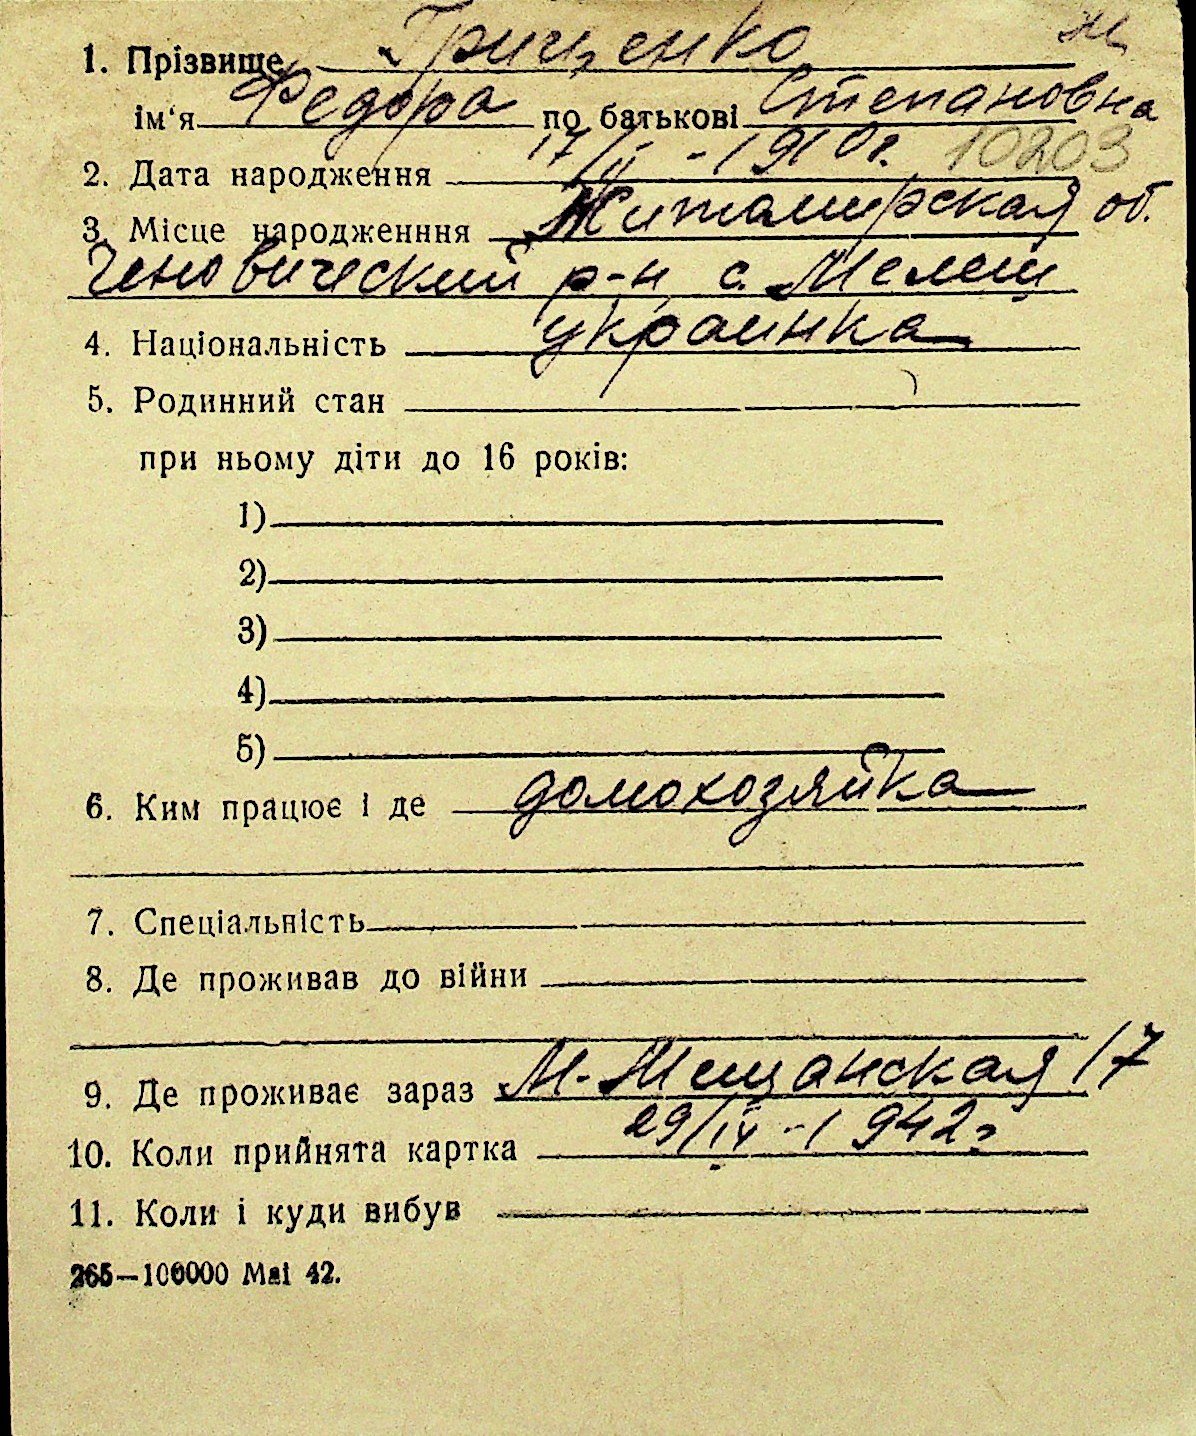 1. Прізвище Грищенко
ім'я Федора по батькові Степановна
2. Дата народження 17/II - 1910г. 10203
3. Місце народженння Житомирская об.
Чеповический р-н с. Мелещ
4. Національність украинка
5. Родинний стан
при ньому діти до 16 років:
1)
2)
3)
4)
5)
6. Ким працює і де домохозяйка
7. Спеціальність
8. Де проживав до війни
9. Де проживає зараз М-Мещанская 17
10. Коли прийнята картка 29/IV - 1942г
11. Коли і куди вибув
265—100000 Маі 42.